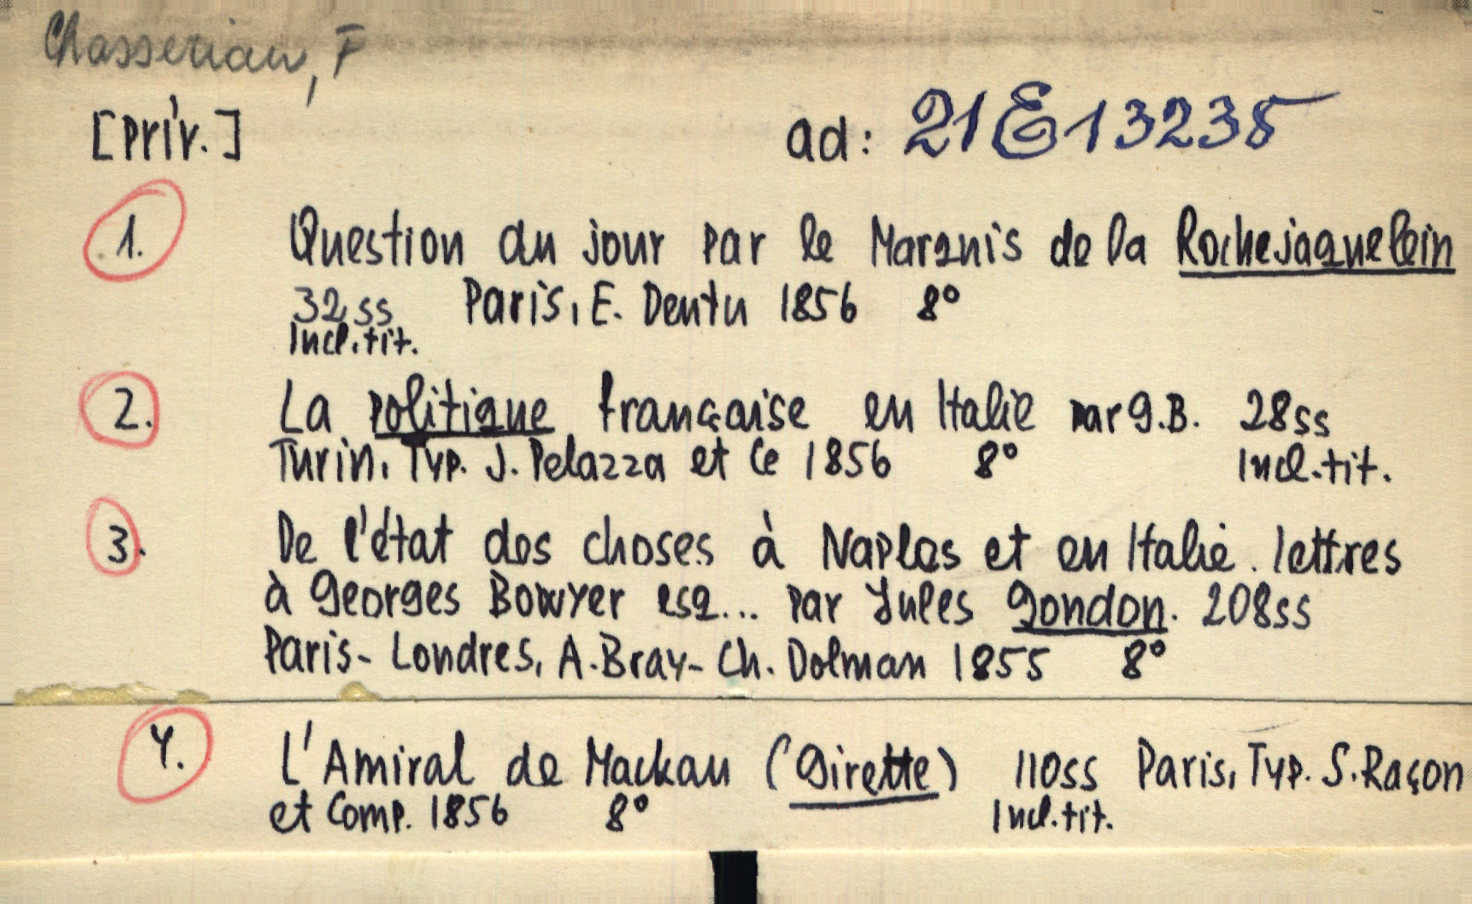 Chasseriau, F
[přív.] ad: 21 E 13235
1. Question du jour par le Marquis de la Rochejaquelein
32 ss Paris, E. Dentu 1856 8°
Incl. tit.
2. La politique française en Italie par G.B. 28 ss
Turin, Typ. J. Pelazza et Ce 1856 8° Incl. tit.
3. De l'état des choses à Naples et en Italie. lettres
à Georges Bowyer esq... par Jules Gondon. 208 ss
Paris - Londres, A. Bray - Ch. Dolman 1855 8°
4. L'Amiral de Mackau (Girette) 110 ss Paris, Typ. S. Raçon
et Comp. 1856 8° Incl. tit.